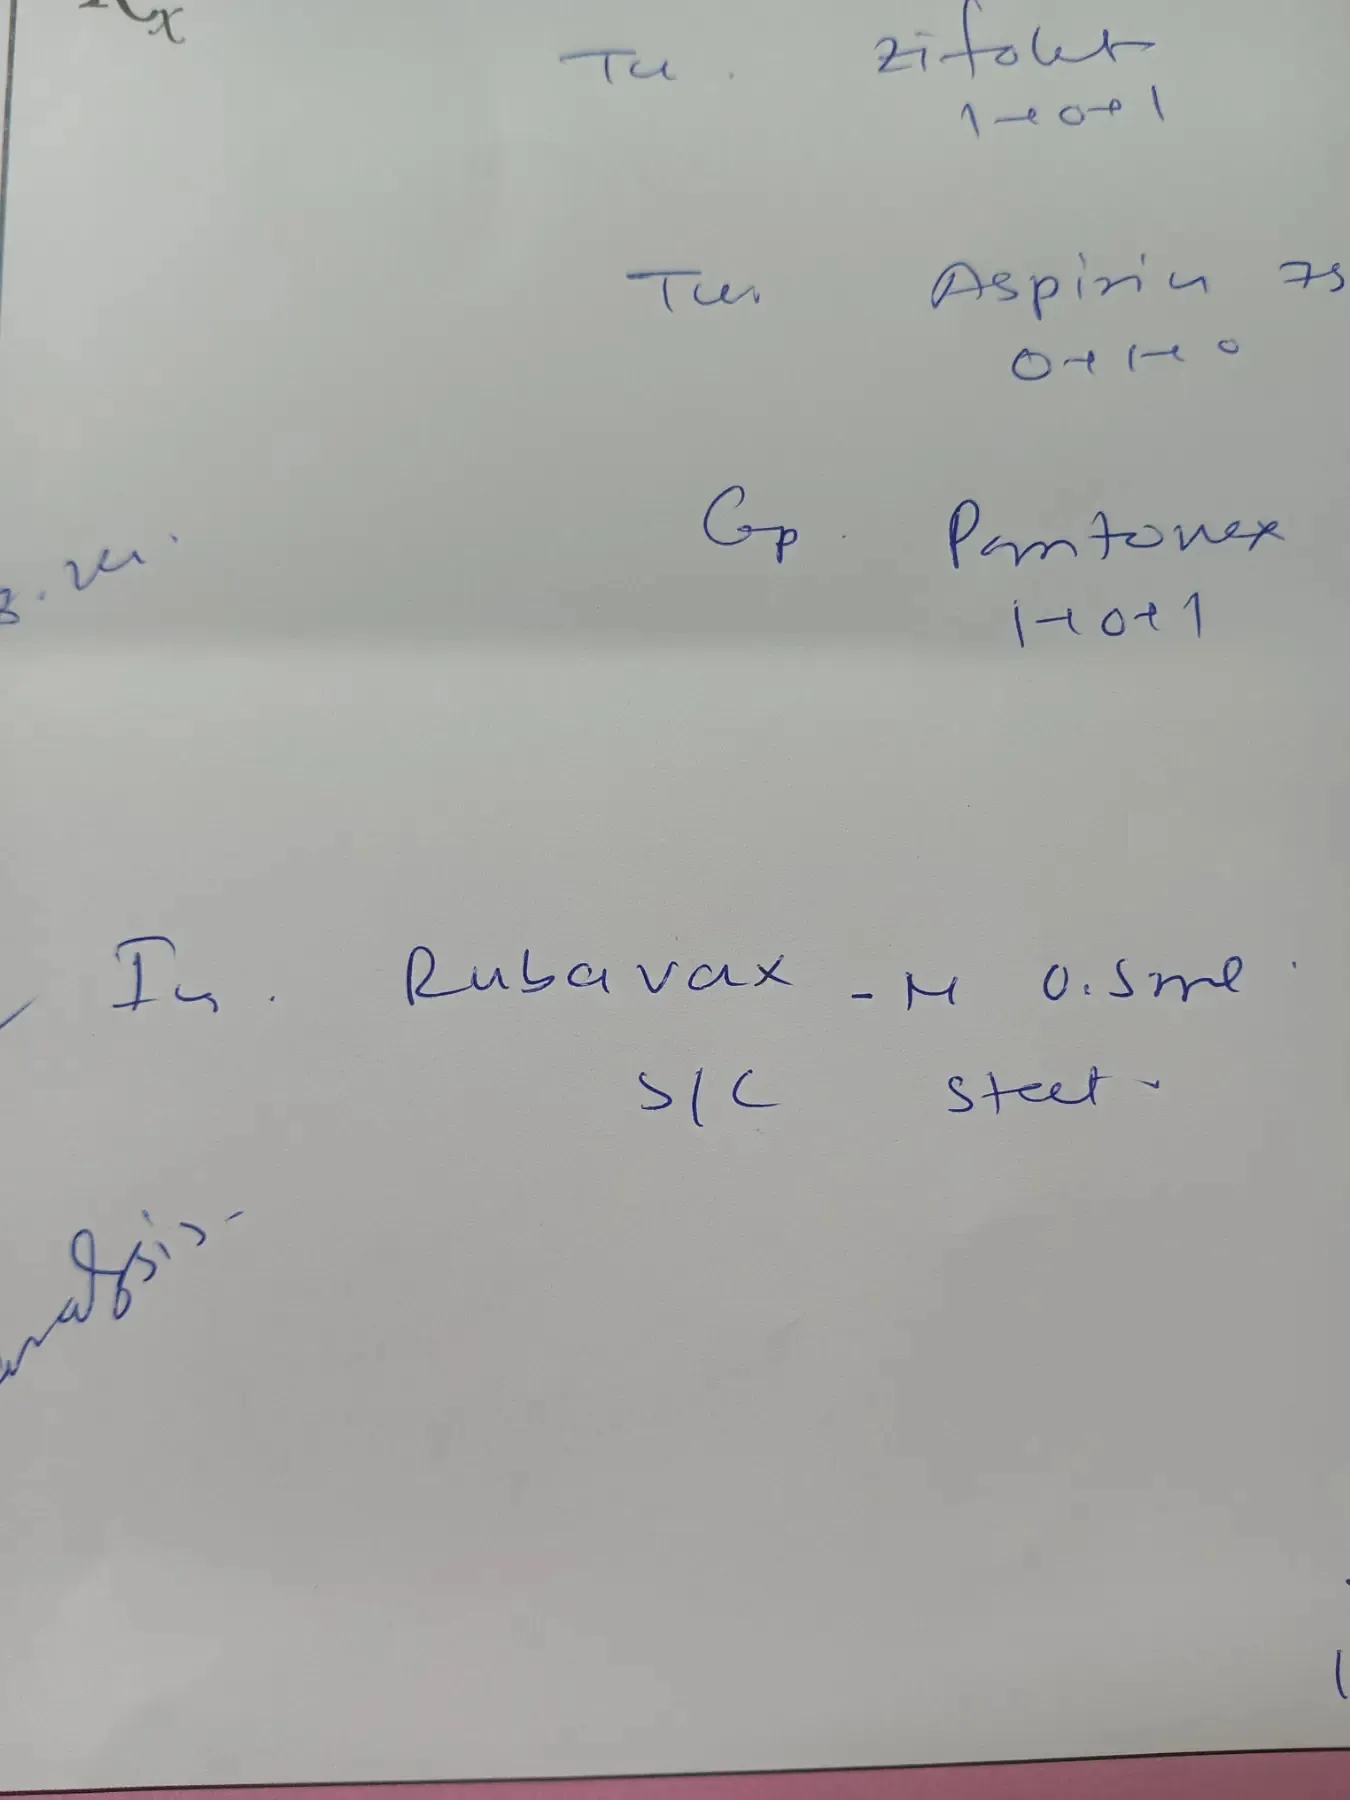 Rx
Tab. Zifolet
1+0+1
Tab. Aspirin 75
0+1+0
Cap. Pantonex
1+0+1
Inj. Rubavax - M 0.5ml.
S/C Stat.